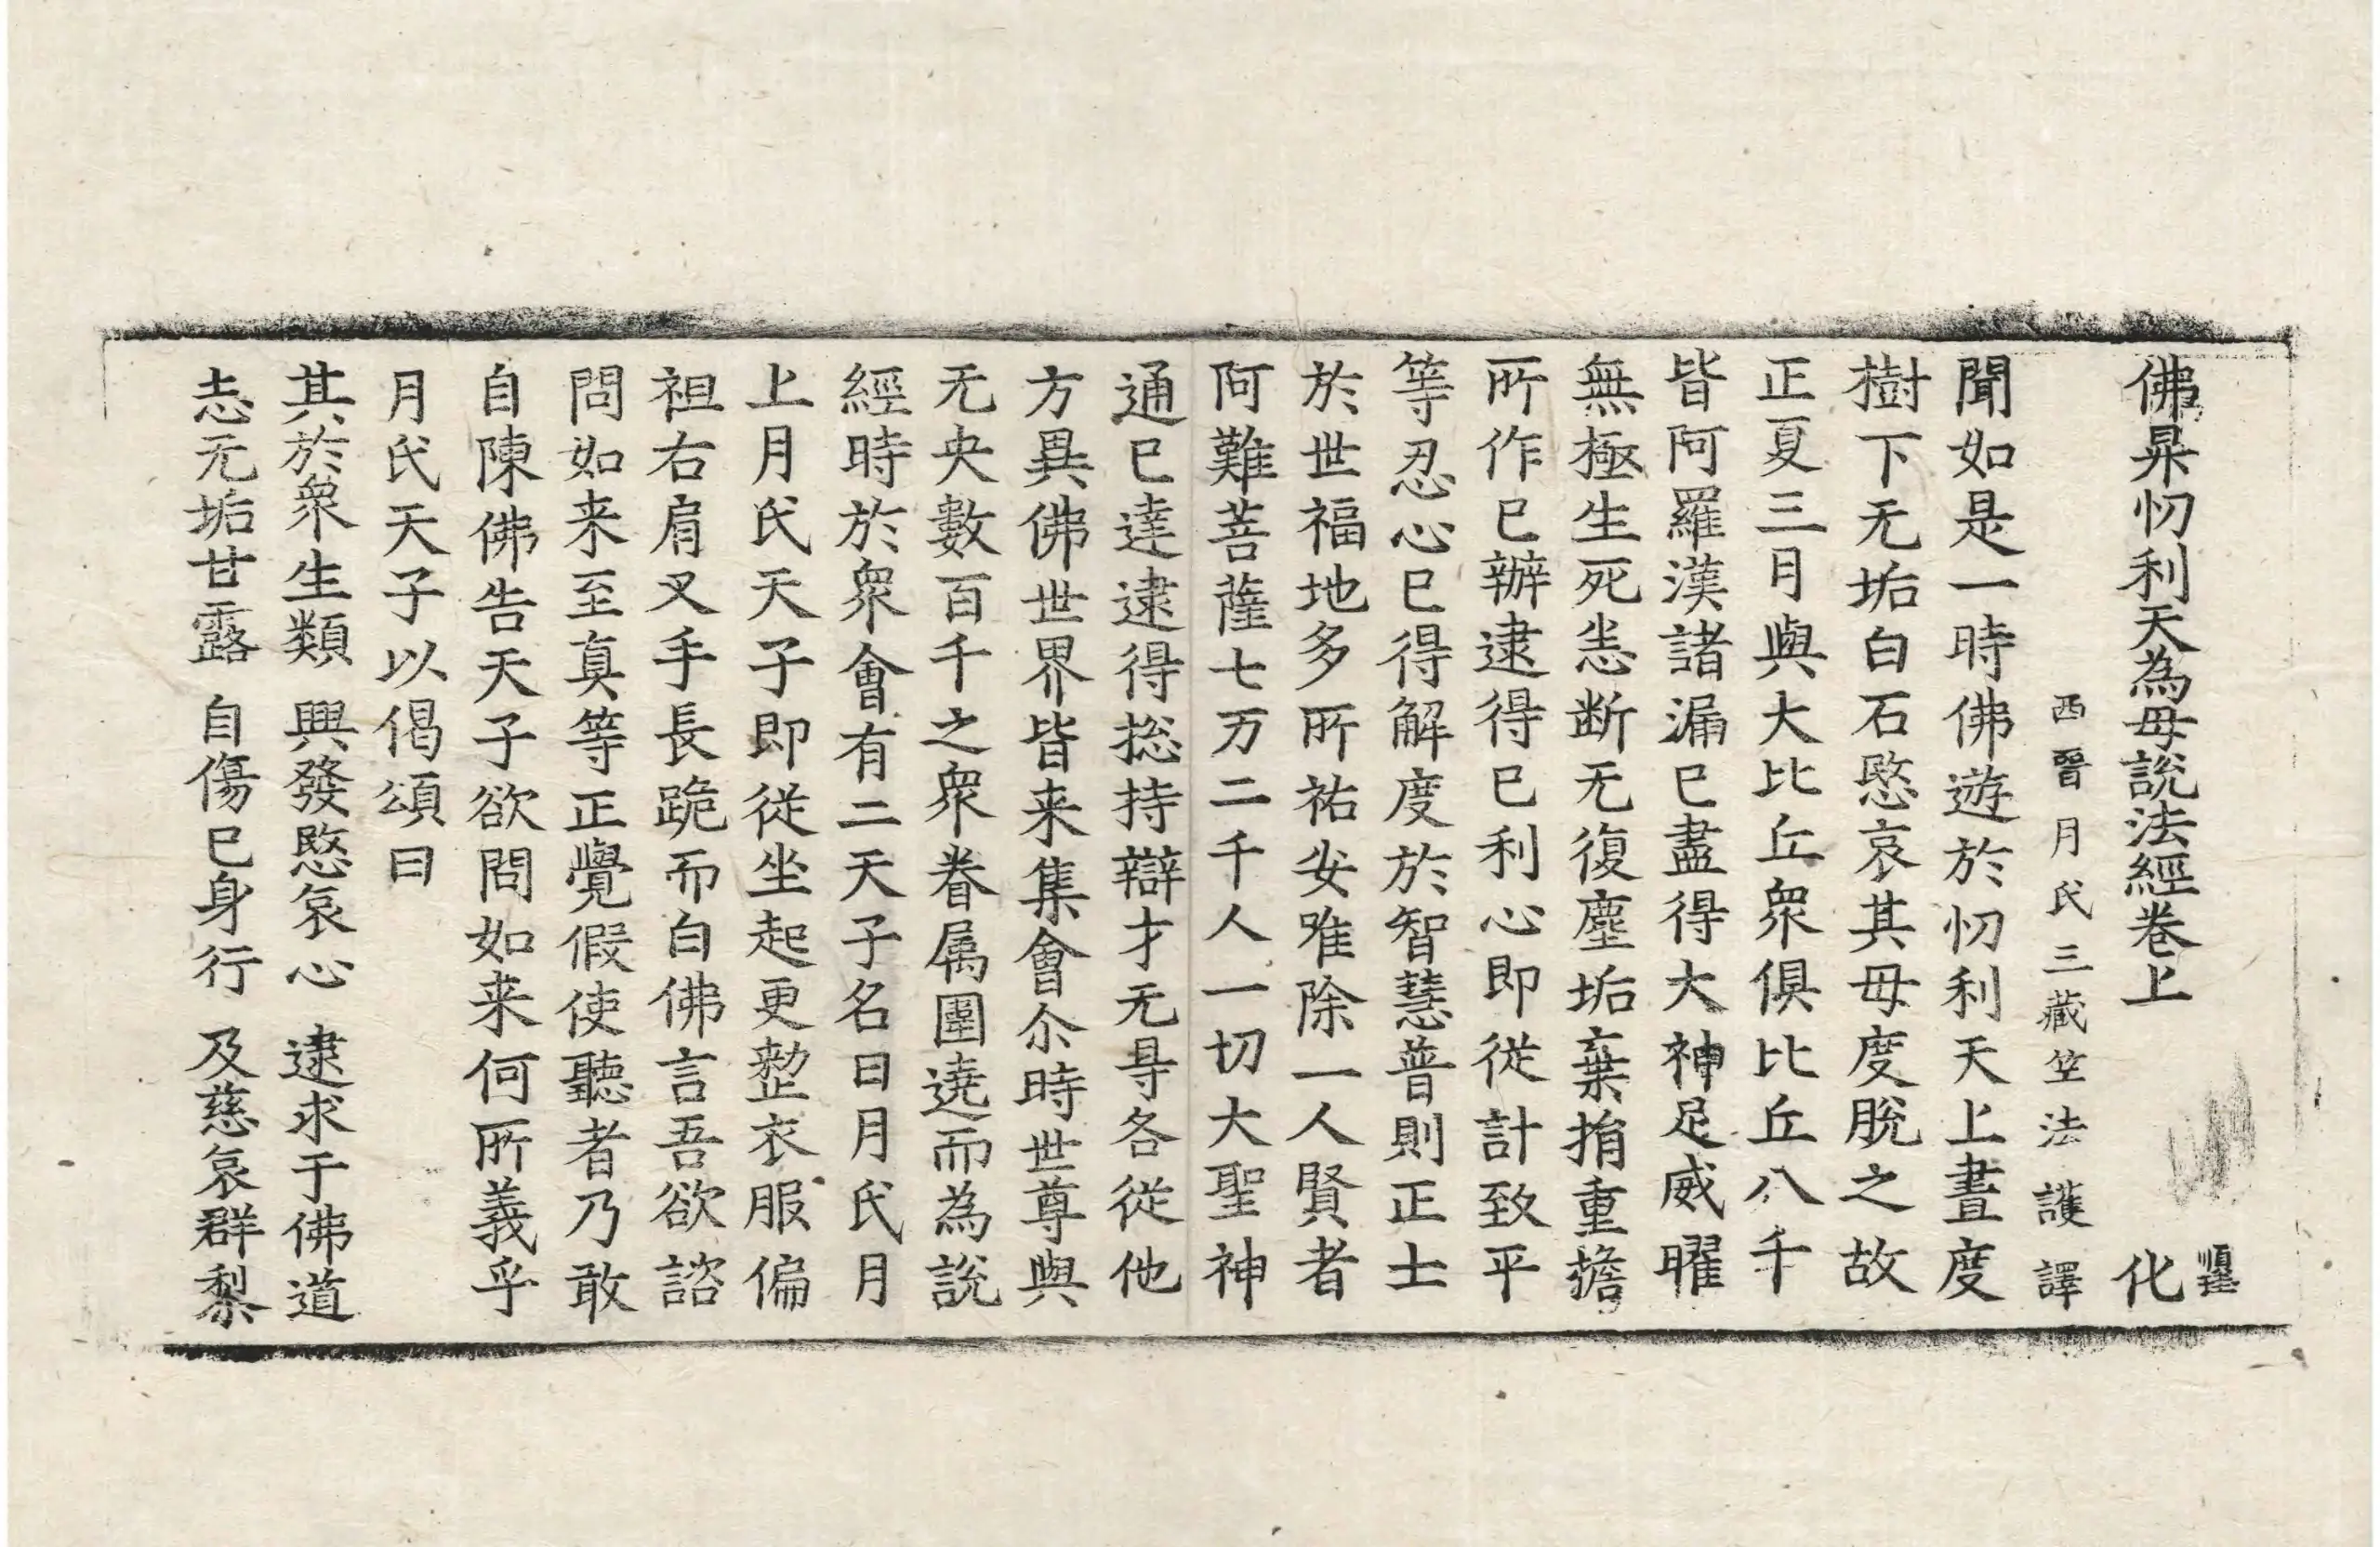 佛昇忉利天為母說法經卷上 化
西晉月氏三藏竺法護譯
聞如是一時佛遊於忉利天上晝度
樹下无垢白石愍哀其母度脫之故
正夏三月與大比丘衆俱比丘八千
皆阿羅漢諸漏已盡得大神足威曜
無極生死恚断无復塵垢棄捐重擔
所作已辦逮得已利心即従計致平
等忍心已得解度於智慧普則正士
於世福地多所祐安唯除一人賢者
阿難菩薩七万二千人一切大聖神
通已達逮得捴持辯才无㝵各従他
方異佛世界皆来集會尒時世尊與
无央數百千之衆眷属圍遶而為說
經時於衆會有二天子名曰月氏月
上月氏天子即従坐起更整衣服偏
袒右肩叉手長跪而白佛言吾欲諮
問如来至真等正覺假使聽者乃敢
自陳佛告天子欲問如来何所義乎
月氏天子以偈頌曰
其於衆生類 興發愍哀心 逮求于佛道
志无垢甘露 自傷已身行 及慈哀群黎